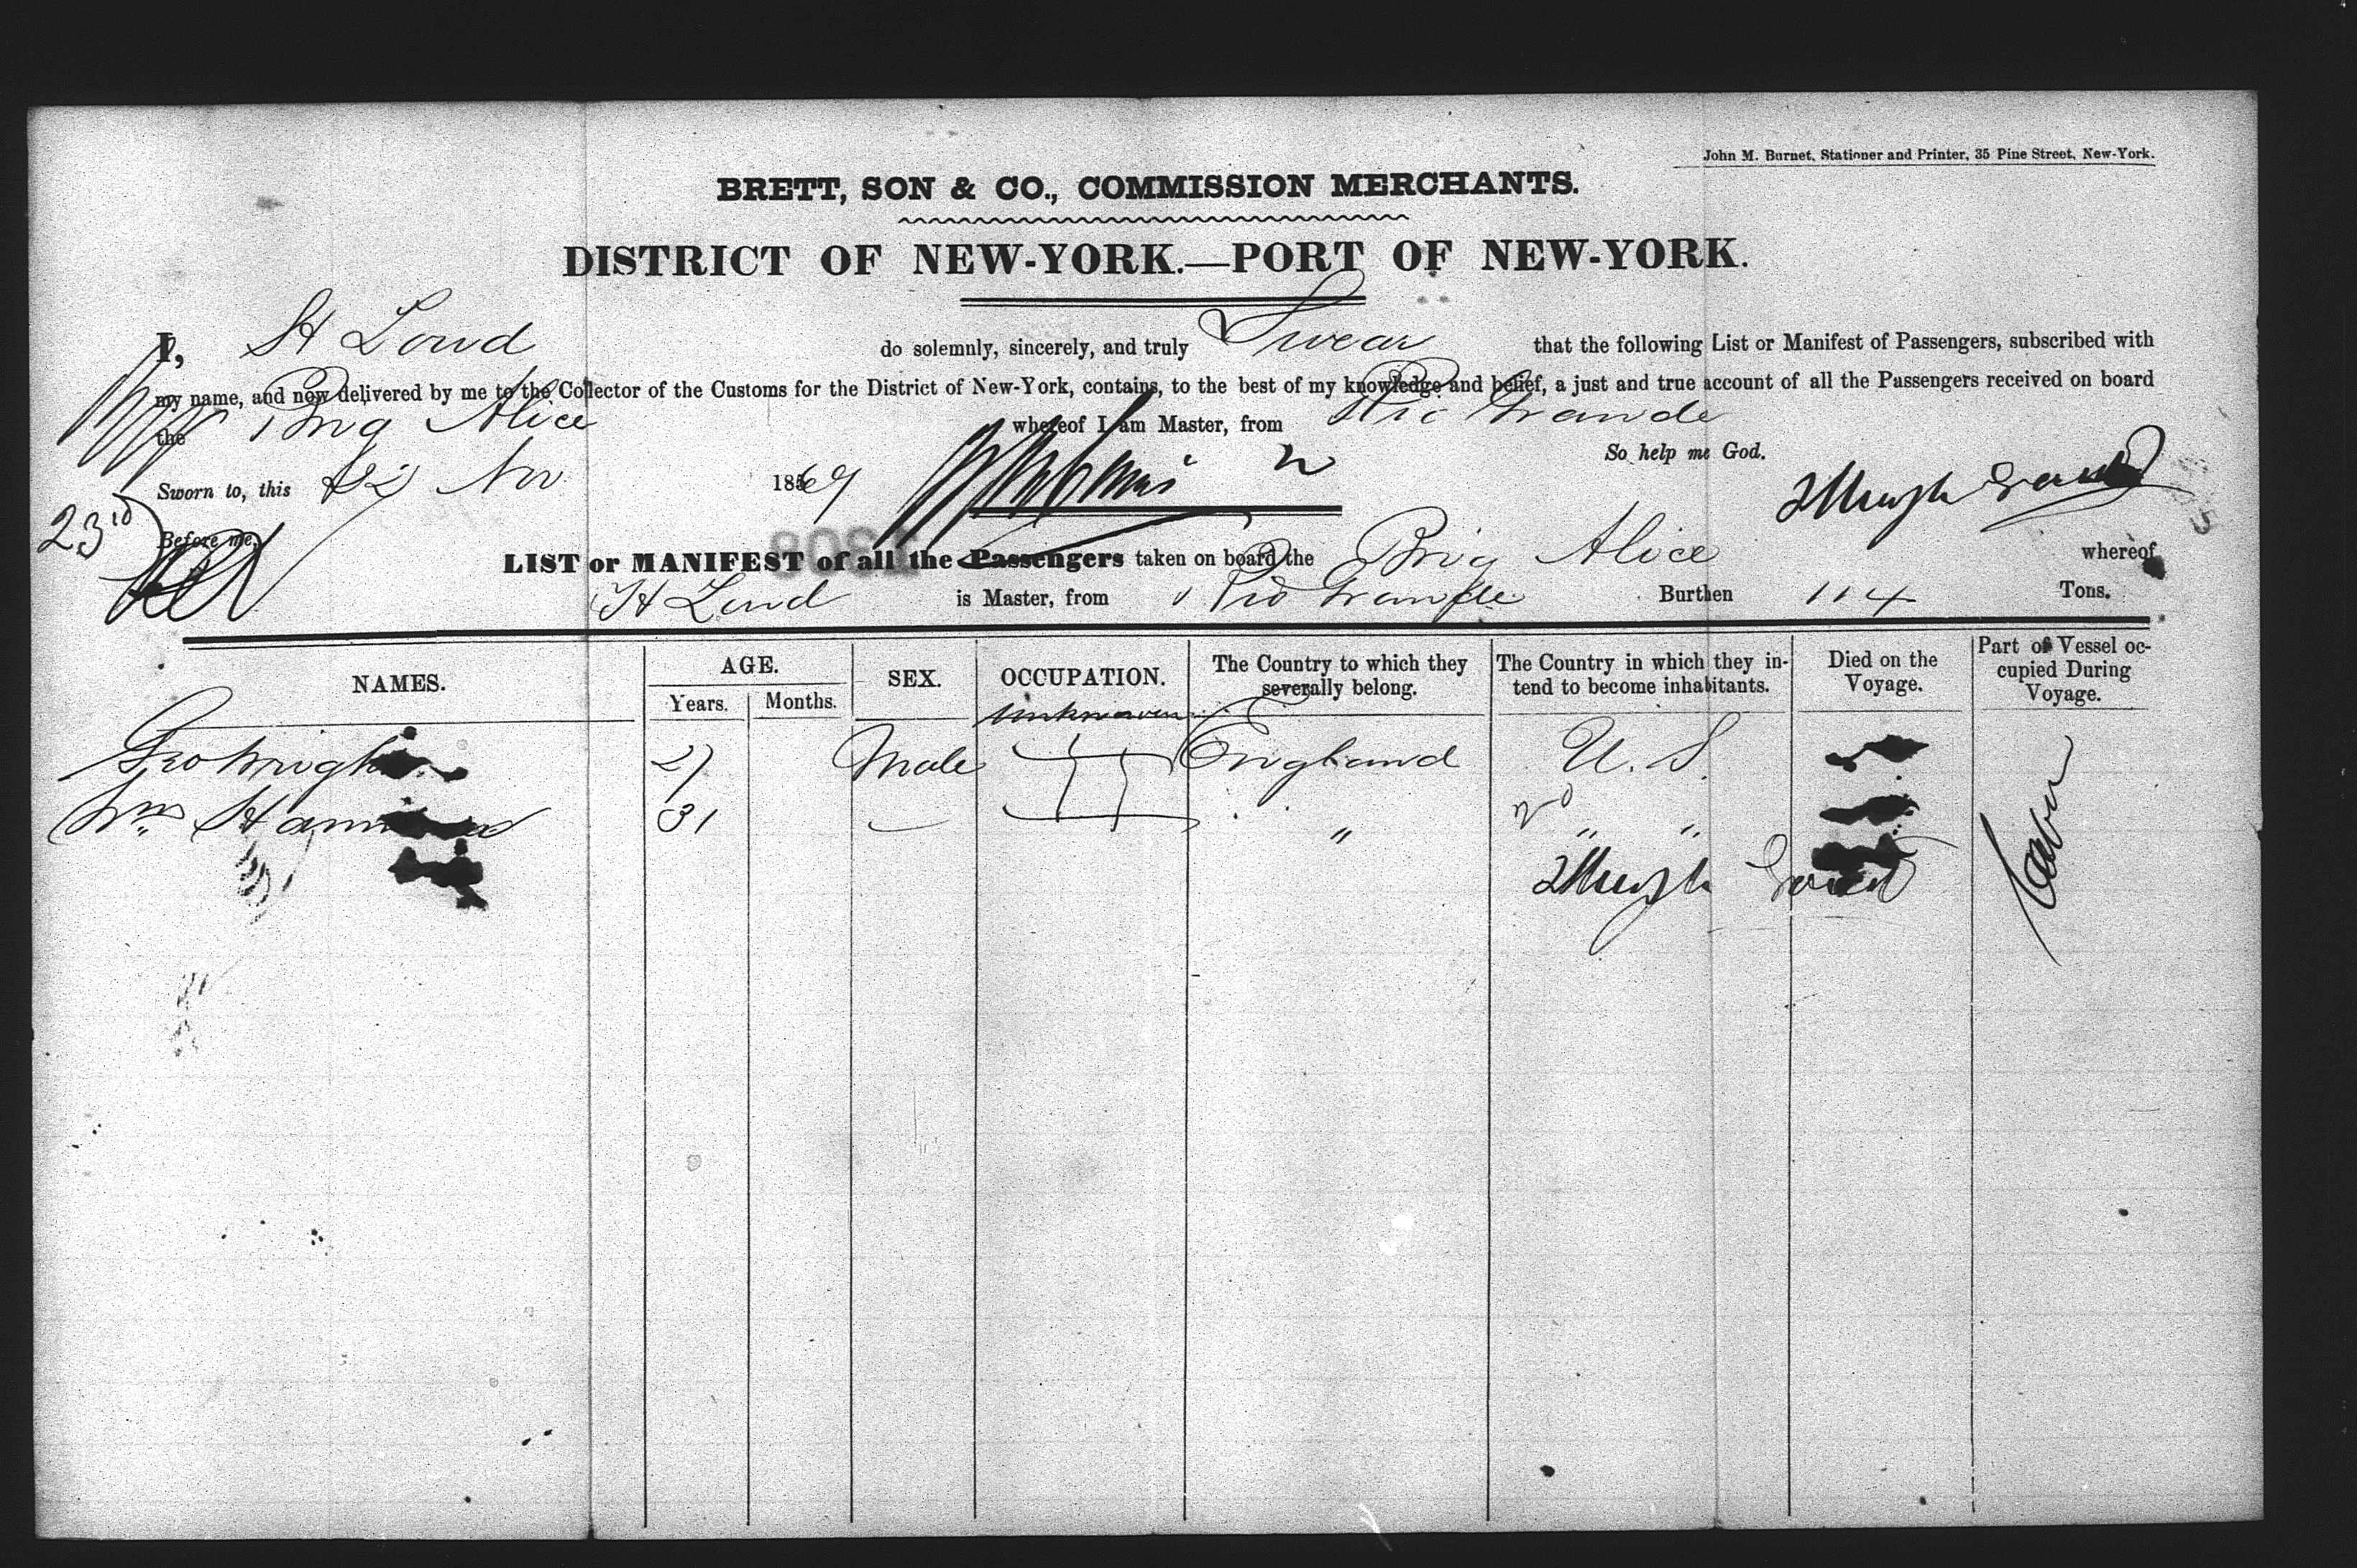 John M. Burnet, Stationer and Printer, 35 Pine Street, New-York.
BRETT, SON & CO., COMMISSION MERCHANTS.
DISTRICT OF NEW-YORK.—PORT OF NEW-YORK.
I, do solemnly, sincerely, and truly Swear that the following List or Manifest of Passengers, subscribed with
my name, and now delivered by me to the Collector of the Customs for the District of New-York, contains, to the best of my knowledge and belief, a just and true account of all the Passengers received on board
the Brig Alice whereof I am Master, from Rio Grande
So help me God.
Sworn to, this 22 Nov 1869
23rd
Before me,
LIST or MANIFEST of all the Passengers taken on board the Brig Alice whereof
is Master, from Rio Grande Burthen 114 Tons.
NAMES. AGE. Years. Months. SEX. OCCUPATION. The Country to which they severally belong. The Country in which they intend to become inhabitants. Died on the Voyage. Part of Vessel occupied During Voyage.
Unknown
Geo Wright 27 Male England U. S. Cabin
Wm 31 " " "